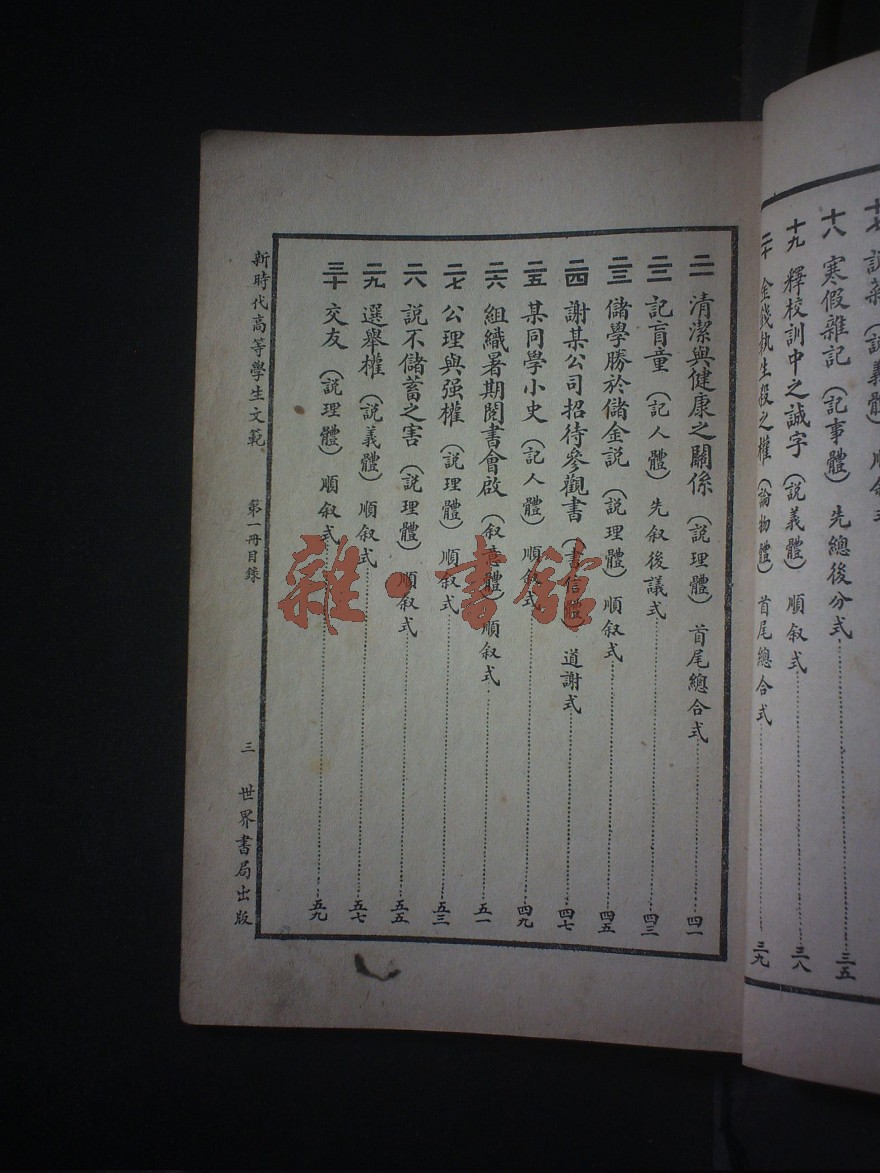 十八 寒假雜記（記事體）先總後分式 三五
十九 釋校訓中之誠字（説義體）順叙式 三八
二十 金錢執生殺之權（論物體）首尾總合式 三九
二一 清潔與健康之關係（説理體）首尾總合式 四一
二二 記盲童（記人體）先叙後議式 四三
二三 儲學勝於儲金説（説理體）順叙式 四五
二四 謝某公司招待參觀書（書信體）道謝式 四七
二五 某同學小史（記人體）順叙式 四九
二六 組織暑期閱書會啟（叙意體）順叙式 五一
二七 公理與强權（説理體）順叙式 五三
二八 説不儲蓄之害（説理體）順叙式 五五
二九 選舉權（説義體）順叙式 五七
三十 交友（説理體）順叙式 五九
新時代高等學生文範 第一冊目錄 三 世界書局出版
雜·書館